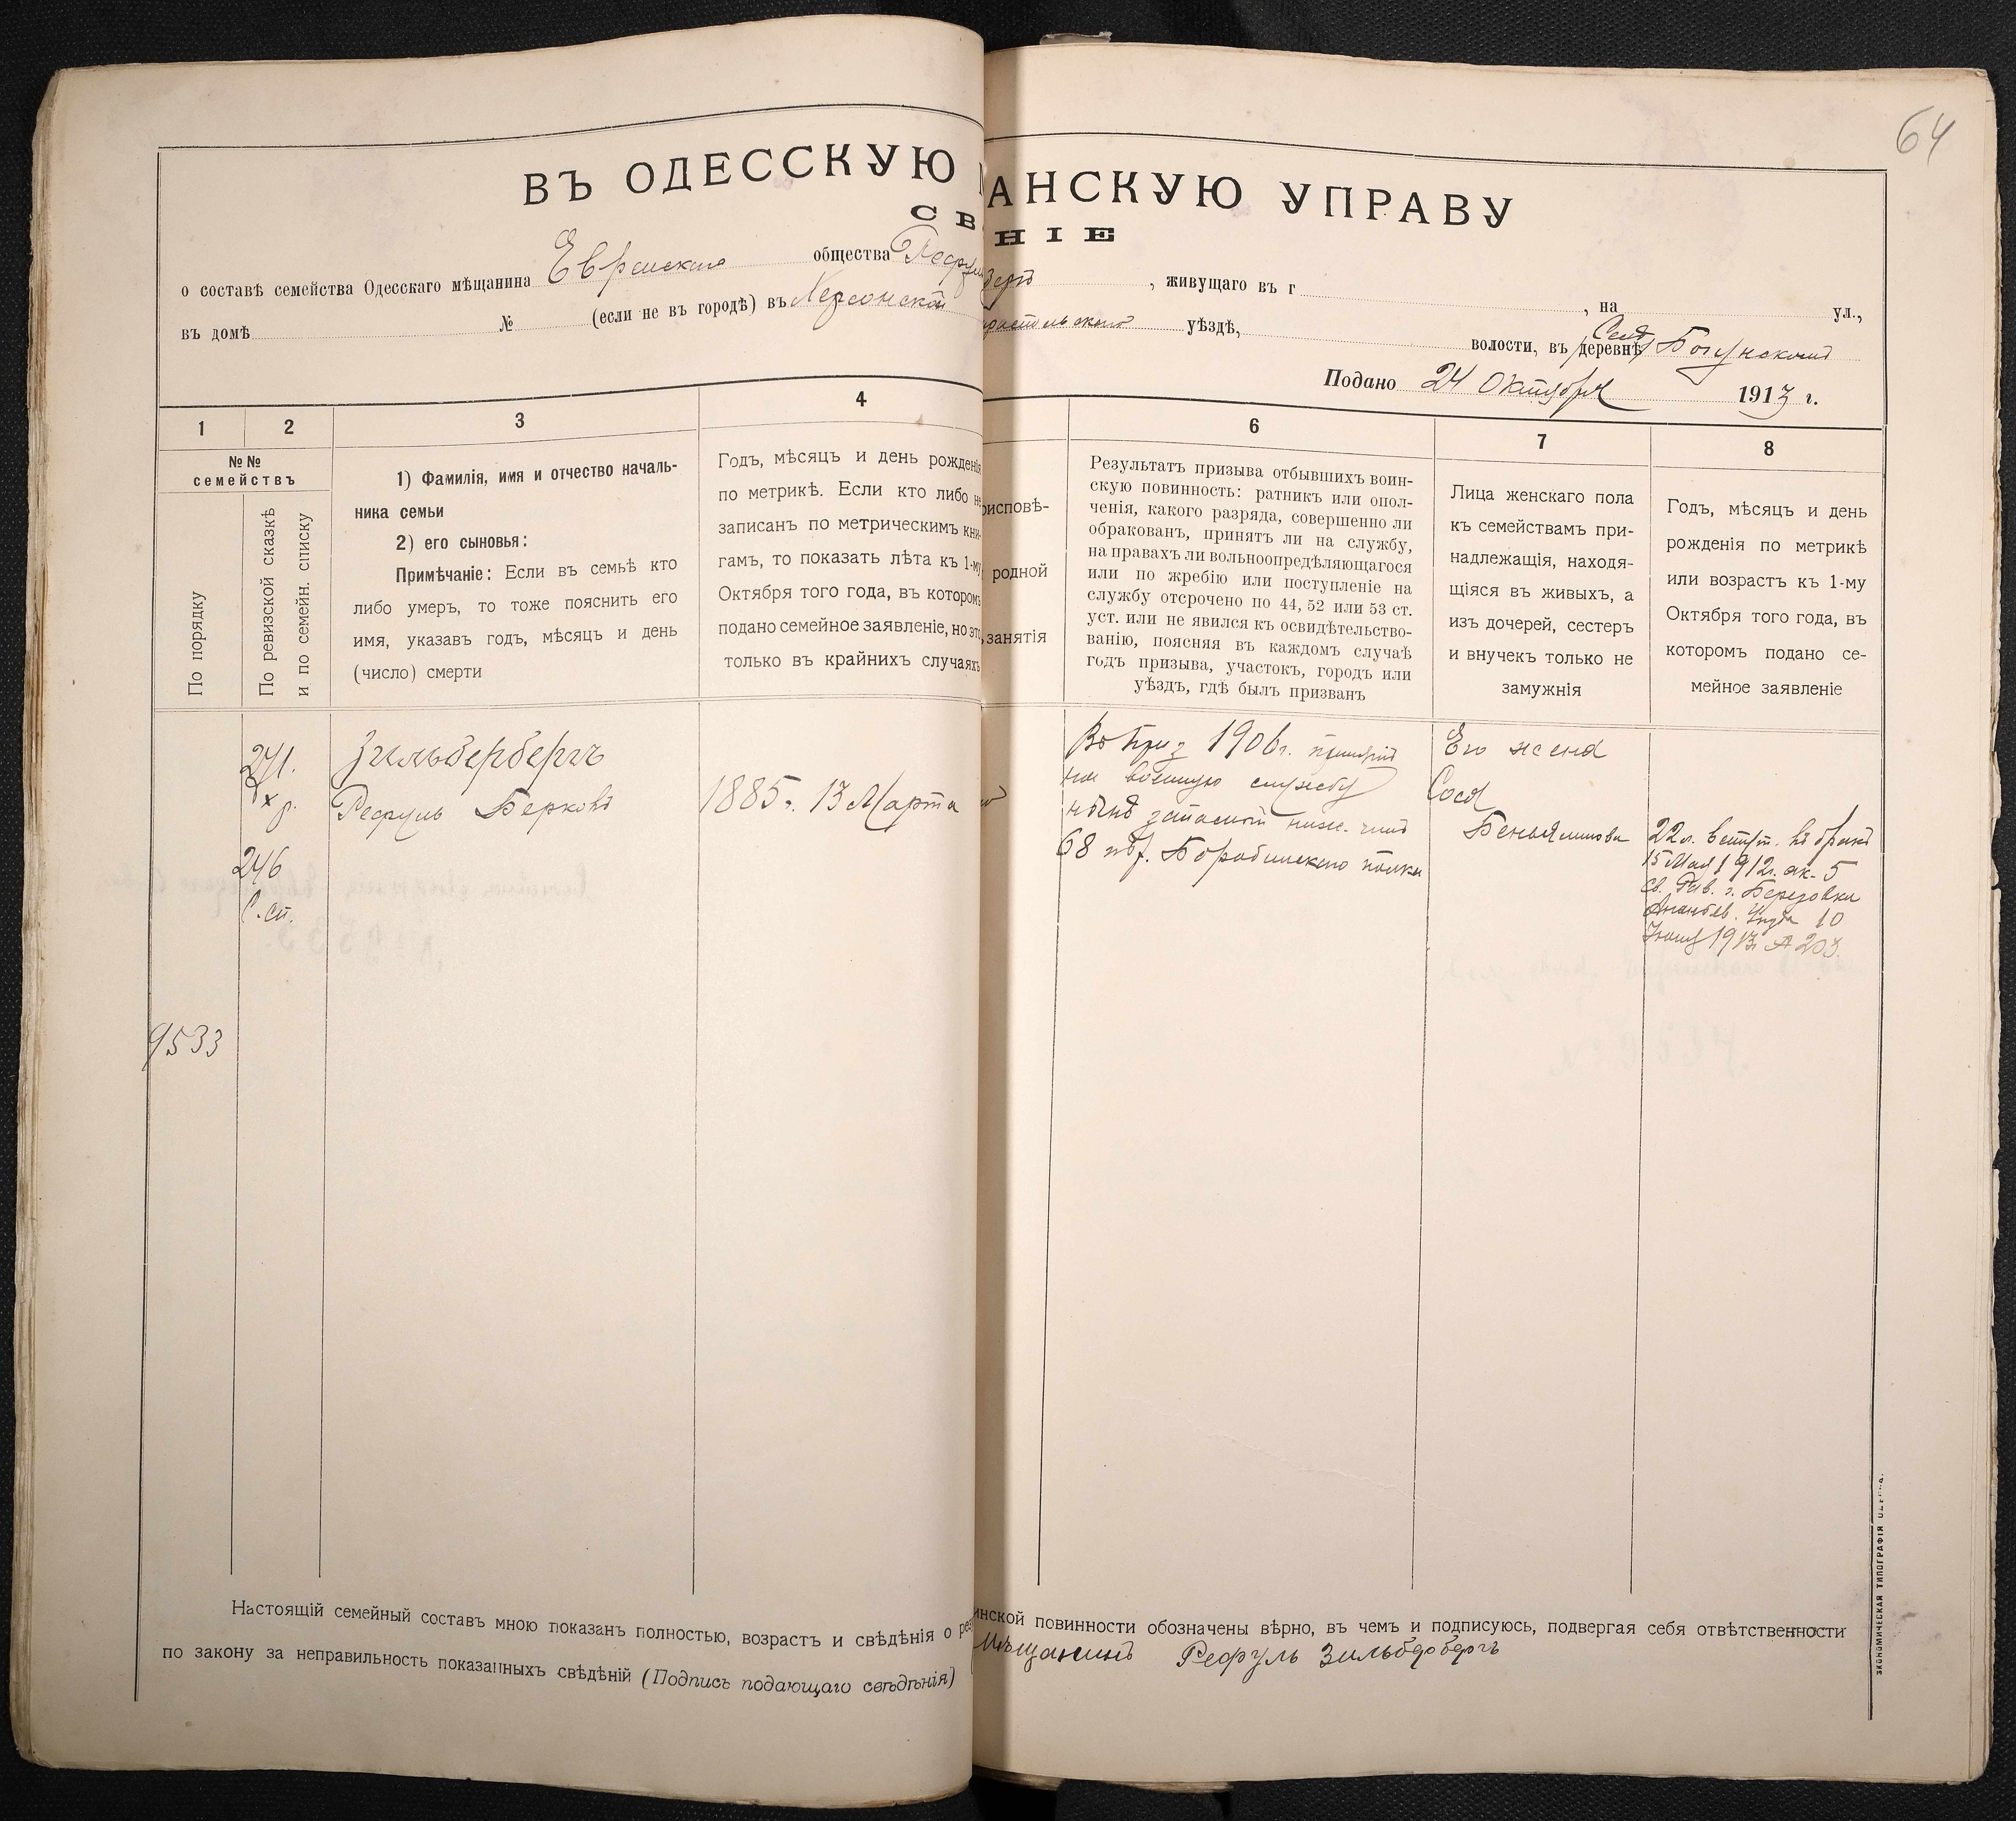 64
ВЪ ОДЕССКУЮ АНСКУЮ УПРАВУ
СВ НІЕ
о составѣ семейства Одесскаго мѣщанина Еврейскаго общества , живущаго въ г , на ул.,
въ домѣ № (если не въ городѣ) въ Херсонской уѣздѣ, волости, въ деревнѣ
Подано 24 Октября 1913 г.
1 2 3 4 6 7 8
№№ семействъ
По порядку
По ревизской сказкѣ
и по семейн. списку
1) Фамилія, имя и отчество началь-
ника семьи
2) его сыновья:
Примѣчаніе: Если въ семьѣ кто
либо умеръ, то тоже пояснить его
имя, указавъ годъ, мѣсяцъ и день
(число) смерти
Годъ, мѣсяцъ и день рожденія
по метрикѣ. Если кто либо не
записанъ по метрическимъ кни-
гамъ, то показать лѣта къ 1-му
Октября того года, въ которомъ
подано семейное заявленіе, но это
только въ крайнихъ случаяхъ
оисповѣ-
родной
занятія
Результатъ призыва отбывшихъ воин-
скую повинность: ратникъ или опол-
ченія, какого разряда, совершенно ли
обракованъ, принятъ ли на службу,
на правахъ ли вольноопредѣляющагося
или по жребію или поступленіе на
службу отсрочено по 44, 52 или 53 ст.
уст. или не явился къ освидѣтельство-
ванію, поясняя въ каждомъ случаѣ
годъ призыва, участокъ, городъ или
уѣздъ, гдѣ былъ призванъ
Лица женскаго пола
къ семействамъ при-
надлежащія, находя-
щіяся въ живыхъ, а
изъ дочерей, сестеръ
и внучекъ только не
замужнія
Годъ, мѣсяцъ и день
рожденія по метрикѣ
или возрастъ къ 1-му
Октября того года, въ
которомъ подано се-
мейное заявленіе
241.
246
С. сп.
9533
Зильбербергъ
Рефуль Берковъ
1885 г. 13 Марта
Въ 1906 г. принятъ
на военную службу
нынѣ запасной ниж. чинъ
68 Бородинского полка
Его жена
Сося
Беньяминова
22 л. вступ. въ бракъ
15 Мая 1912 г. ак. 5
св. Рав. г. Березовки
Ананьев. уѣзда 10
1913 г. № 203.
Настоящій семейный составъ мною показанъ полностью, возрастъ и свѣдѣнія о рез инской повинности обозначены вѣрно, въ чемъ и подписуюсь, подвергая себя отвѣтственности
по закону за неправильность показанныхъ свѣдѣній (Подпись подающаго свѣдѣнія) Мѣщанинъ Рефуль Зильбербергъ
ЭКОНОМИЧЕСКАЯ ТИПОГРАФІЯ